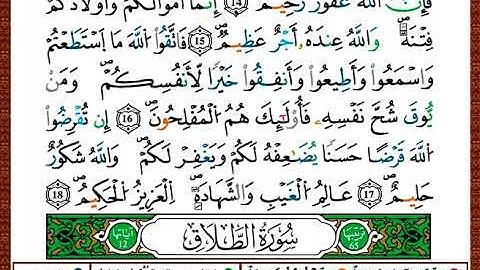 فَإِنَّ ٱللَّهَ غَفُورٌ رَّحِيمٌ ۝14 إِنَّمَآ أَمْوَٰلُكُمْ وَأَوْلَٰدُكُمْ
فِتْنَةٌ ۚ وَٱللَّهُ عِندَهُۥٓ أَجْرٌ عَظِيمٌ ۝15 فَٱتَّقُوا۟ ٱللَّهَ مَا ٱسْتَطَعْتُمْ
وَٱسْمَعُوا۟ وَأَطِيعُوا۟ وَأَنفِقُوا۟ خَيْرًا لِّأَنفُسِكُمْ ۗ وَمَن
يُوقَ شُحَّ نَفْسِهِۦ فَأُو۟لَٰٓئِكَ هُمُ ٱلْمُفْلِحُونَ ۝16 إِن تُقْرِضُوا۟
ٱللَّهَ قَرْضًا حَسَنًا يُضَٰعِفْهُ لَكُمْ وَيَغْفِرْ لَكُمْ ۚ وَٱللَّهُ شَكُورٌ
حَلِيمٌ ۝17 عَٰلِمُ ٱلْغَيْبِ وَٱلشَّهَٰدَةِ ٱلْعَزِيزُ ٱلْحَكِيمُ ۝18
ترتيبها 65 سُورَةُ الطَّلَاقِ آياتها 12